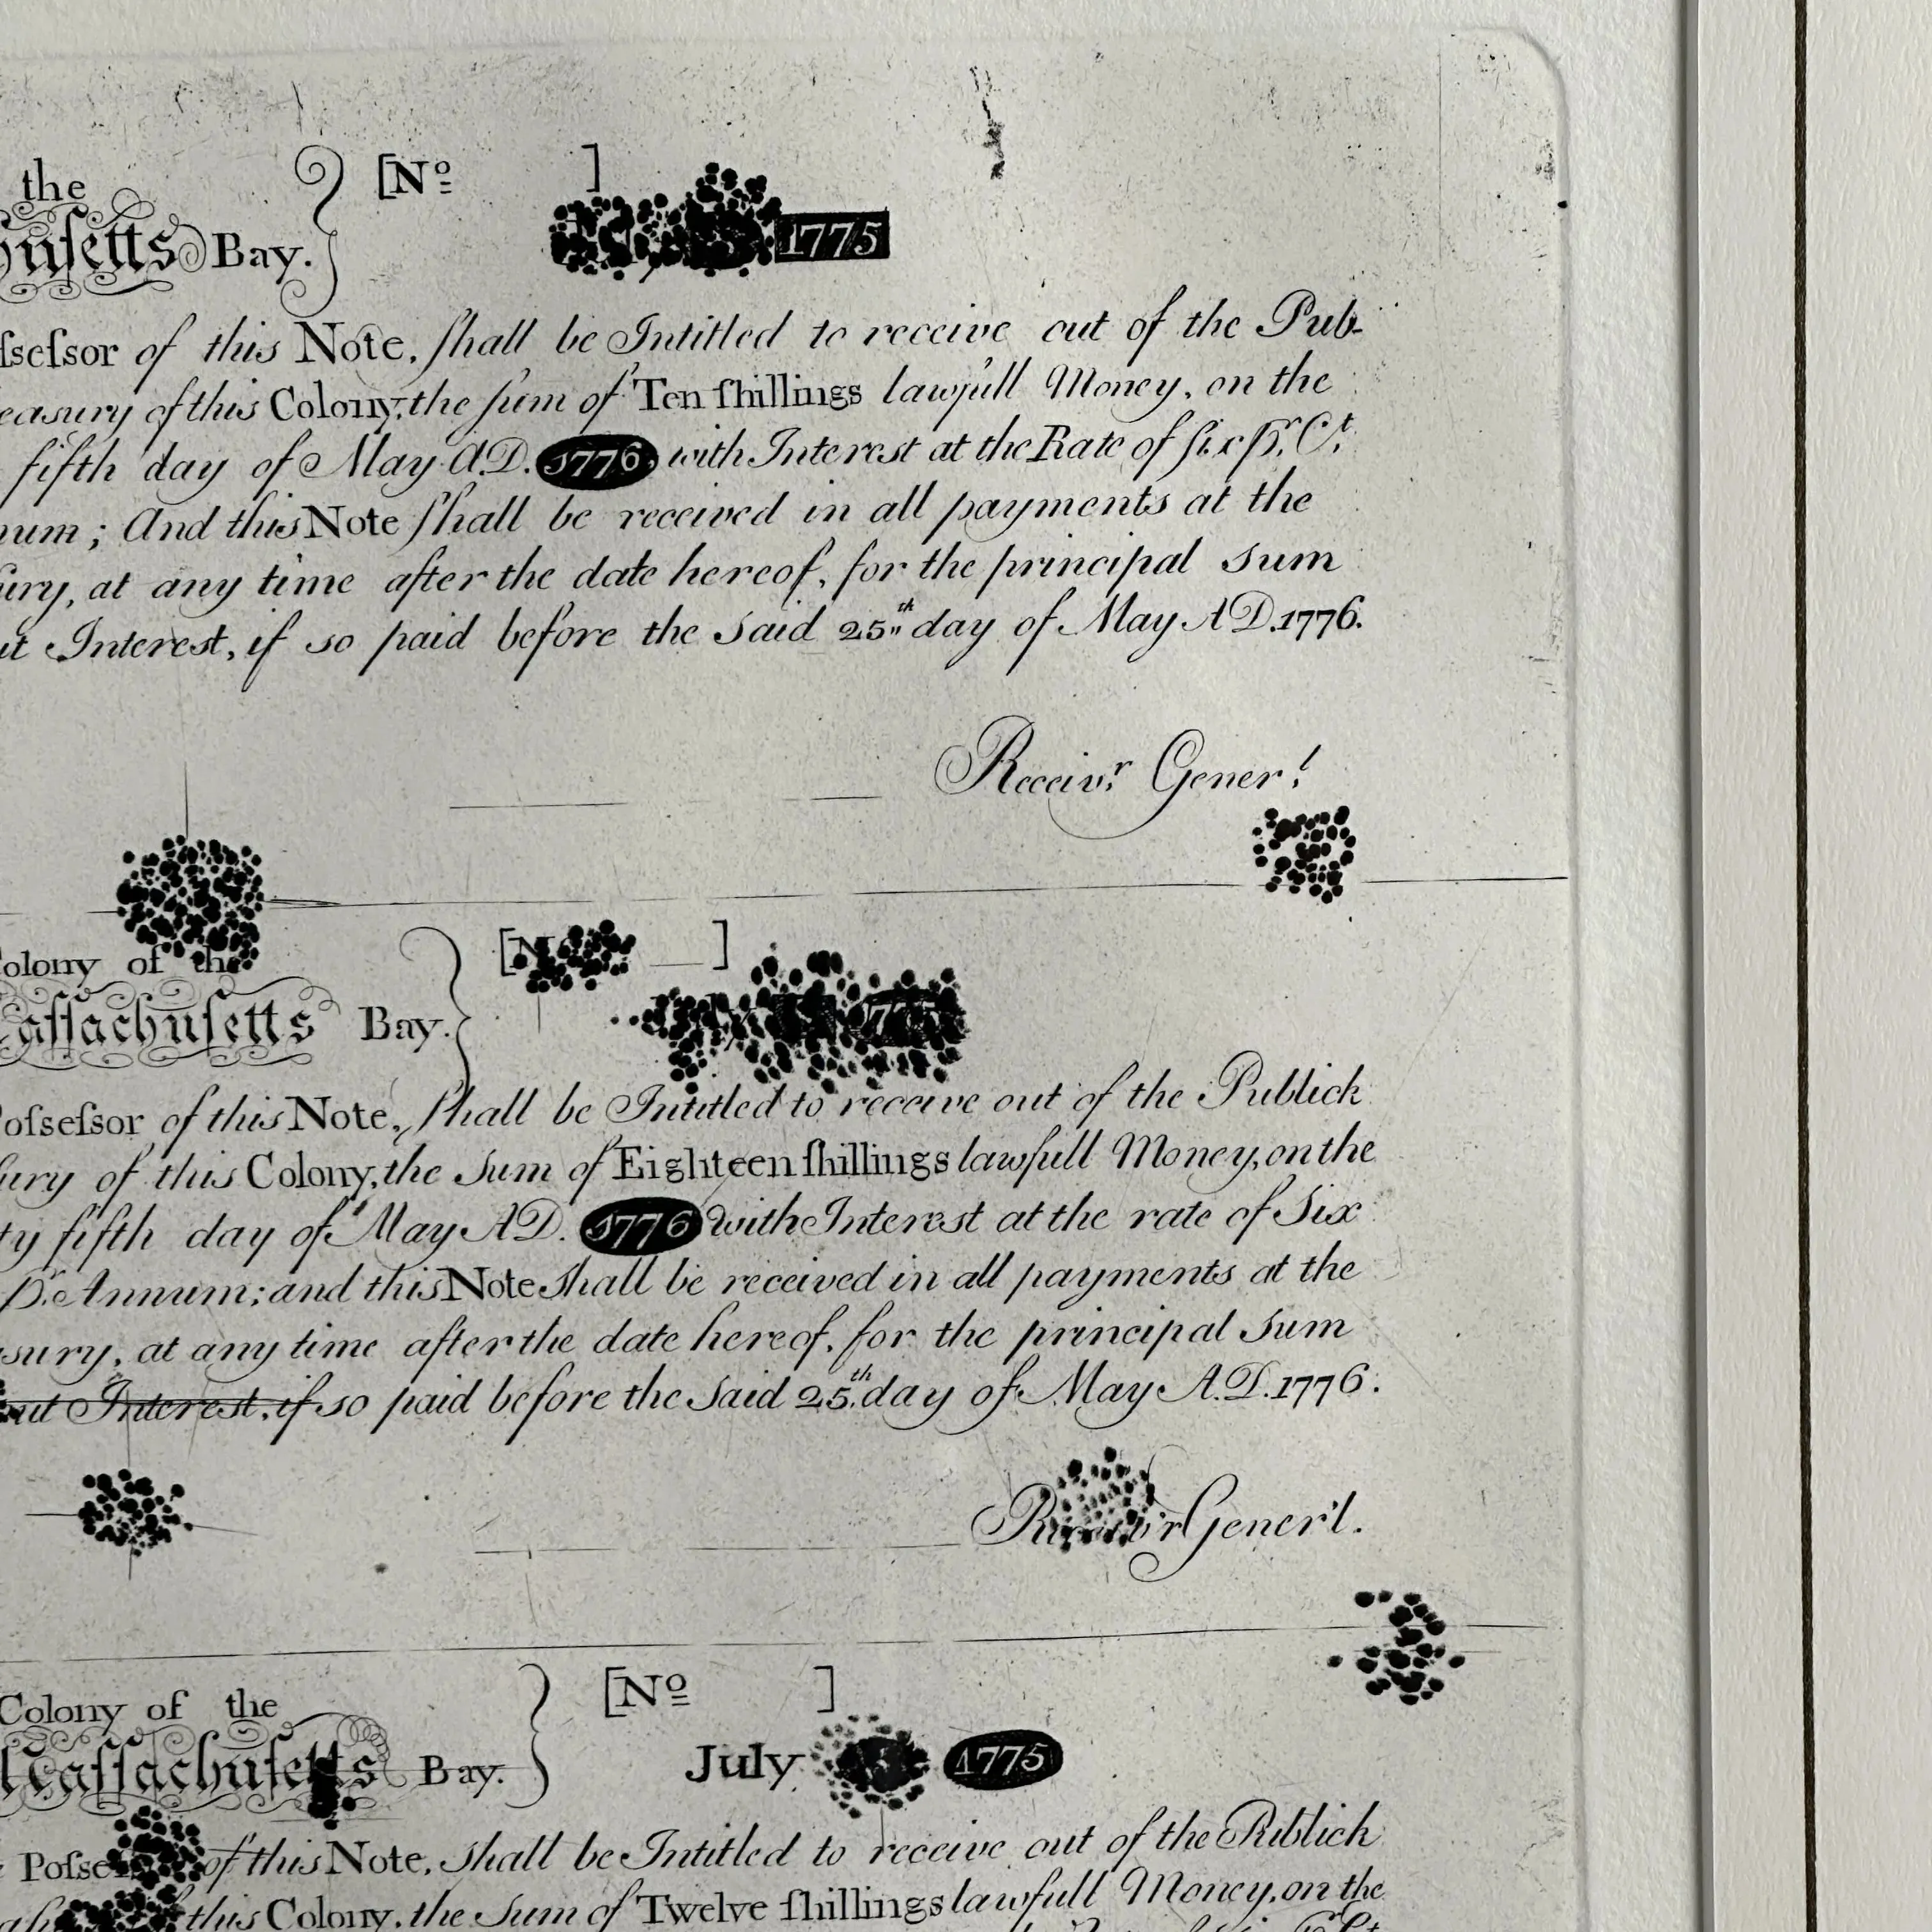 the
[Nº ]
Bay.
1775
of this Note, ſhall be Intitled to receive out of the Pub-
of this Colony, the ſum of Ten ſhillings lawfull Money, on the
fifth day of May A.D. 1776, with Interest at the Rate of ſix Pr. Ct.
; And this Note ſhall be received in all payments at the
at any time after the date hereof, for the principal Sum
Interest, if so paid before the Said 25th day of May A D. 1776.
Receivr. Generl.
Colony of the
[N ]
Maſſachuſetts Bay.
Poſseſsor of this Note, ſhall be Intitled to receive out of the Publick
of this Colony, the Sum of Eighteen ſhillings lawfull Money, on the
fifth day of May A D. 1776 with Interest at the rate of Six
Pr. Annum; and this Note Shall be received in all payments at the
at any time after the date hereof, for the principal Sum
Interest, if so paid before the Said 25th. day of May A.D. 1776.
Gener'l.
Colony of the
[Nº ]
Maſſachuſetts Bay.
July 1775
of this Note, Shall be Intitled to receive out of the Publick
this Colony, the Sum of Twelve ſhillings lawfull Money, on the